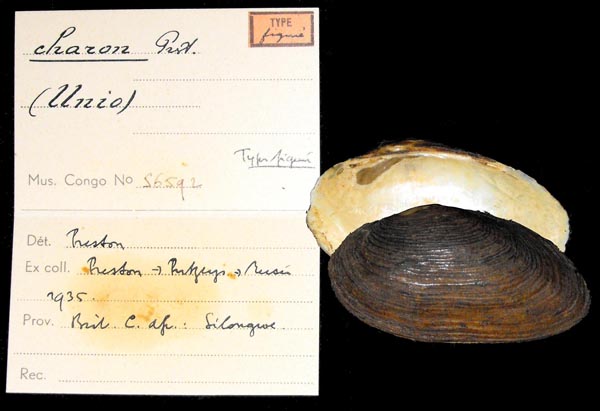 TYPE
figuré
charon Prest.
(Unio)
Type figuré
Mus. Congo No 56592
Dét. Preston
Ex coll. Preston → Putzeys →
1935.
Prov. Brit. C. Afr.: Silongwe
Rec.